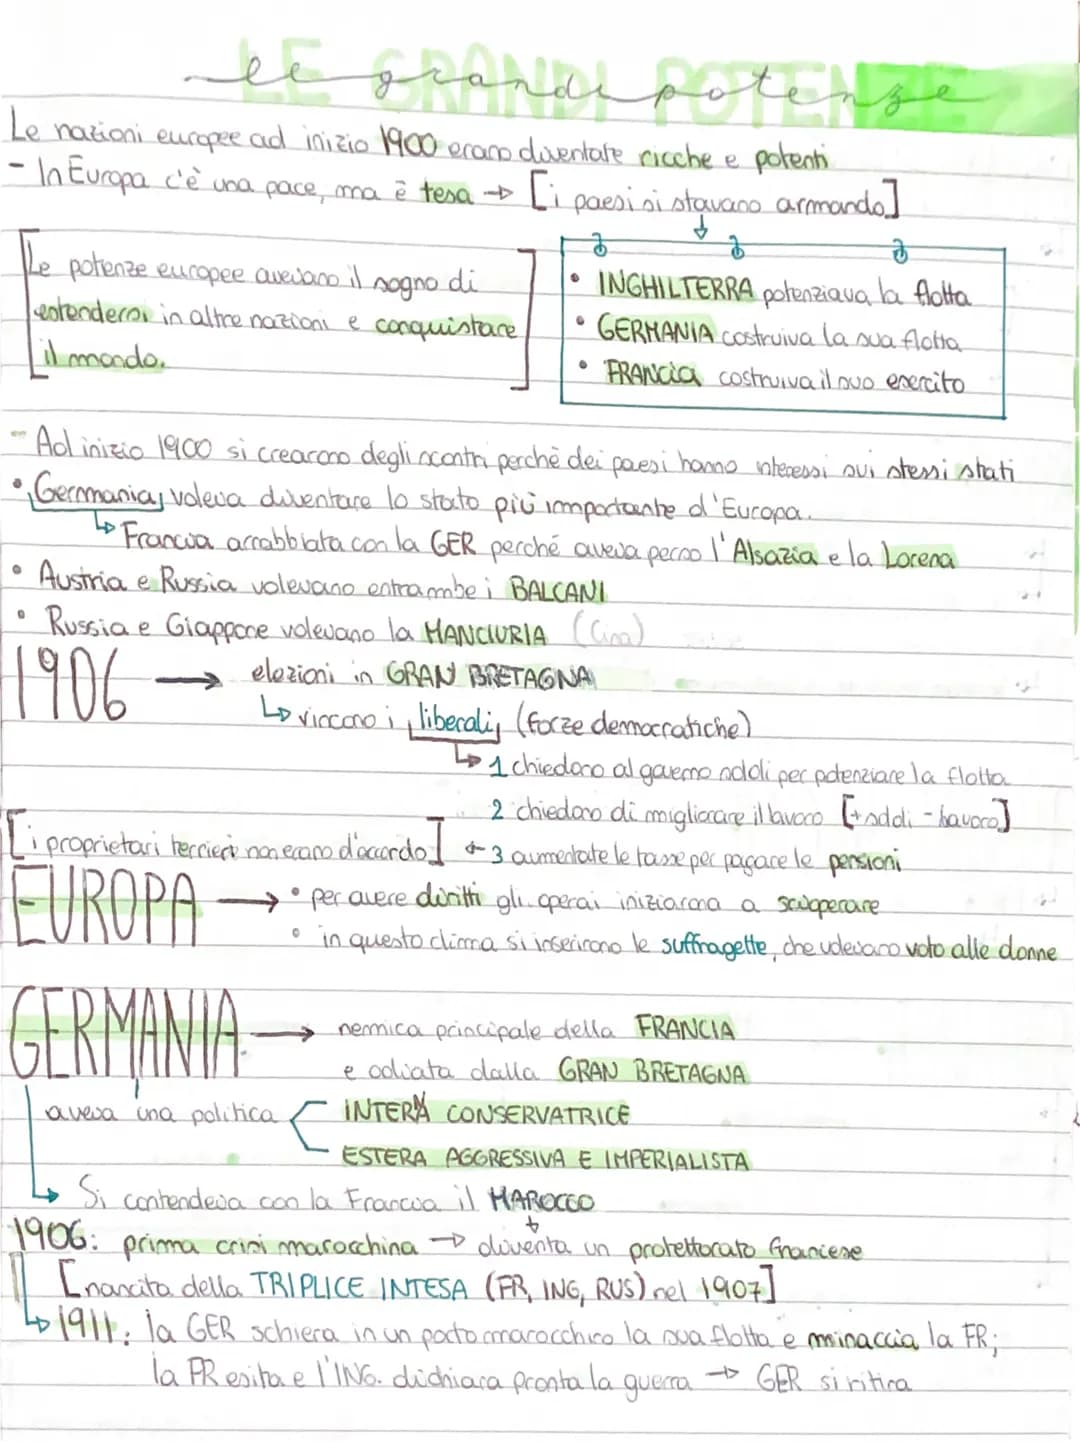 LE GRANDI POTENZE
le grandi potenze
Le nazioni europee ad inizio 1900 erano diventate ricche e potenti
- In Europa c'è una pace, ma è tesa → [i paesi si stavano armando]
[Le potenze europee avevano il sogno di
estendersi in altre nazioni e conquistare
il mondo.]
• INGHILTERRA potenziava la flotta
• GERMANIA costruiva la sua flotta
• FRANCIA costruiva il suo esercito
- Ad inizio 1900 si crearono degli scontri perchè dei paesi hanno interessi sui stessi stati
• Germania, voleva diventare lo stato più importante d'Europa.
↳ Francia arrabbiata con la GER perché aveva perso l'Alsazia e la Lorena
• Austria e Russia volevano entrambe i BALCANI
• Russia e Giappone volevano la MANCIURIA (Cina)
1906 → elezioni in GRAN BRETAGNA
↳ vincono i liberali, (forze democratiche)
↳ 1 chiedono al governo soldi per potenziare la flotta
2 chiedono di migliorare il lavoro [+ soldi - lavoro]
[i proprietari terrieri non erano d'accordo] ← 3 aumentate le tasse per pagare le pensioni
EUROPA → • per avere diritti gli operai iniziarono a scioperare
• in questo clima si inserirono le suffragette, che volevano voto alle donne
GERMANIA → nemica principale della FRANCIA
e odiata dalla GRAN BRETAGNA
aveva una politica INTERNA CONSERVATRICE
ESTERA AGGRESSIVA E IMPERIALISTA
↳ Si contendeva con la Francia il MAROCCO
1906: prima crisi marocchina → diventa un protettorato francese
[nascita della TRIPLICE INTESA (FR, ING, RUS) nel 1907]
↳ 1911: la GER schiera in un porto marocchino la sua flotta e minaccia la FR;
la FR esita e l'ING. dichiara pronta la guerra → GER si ritira